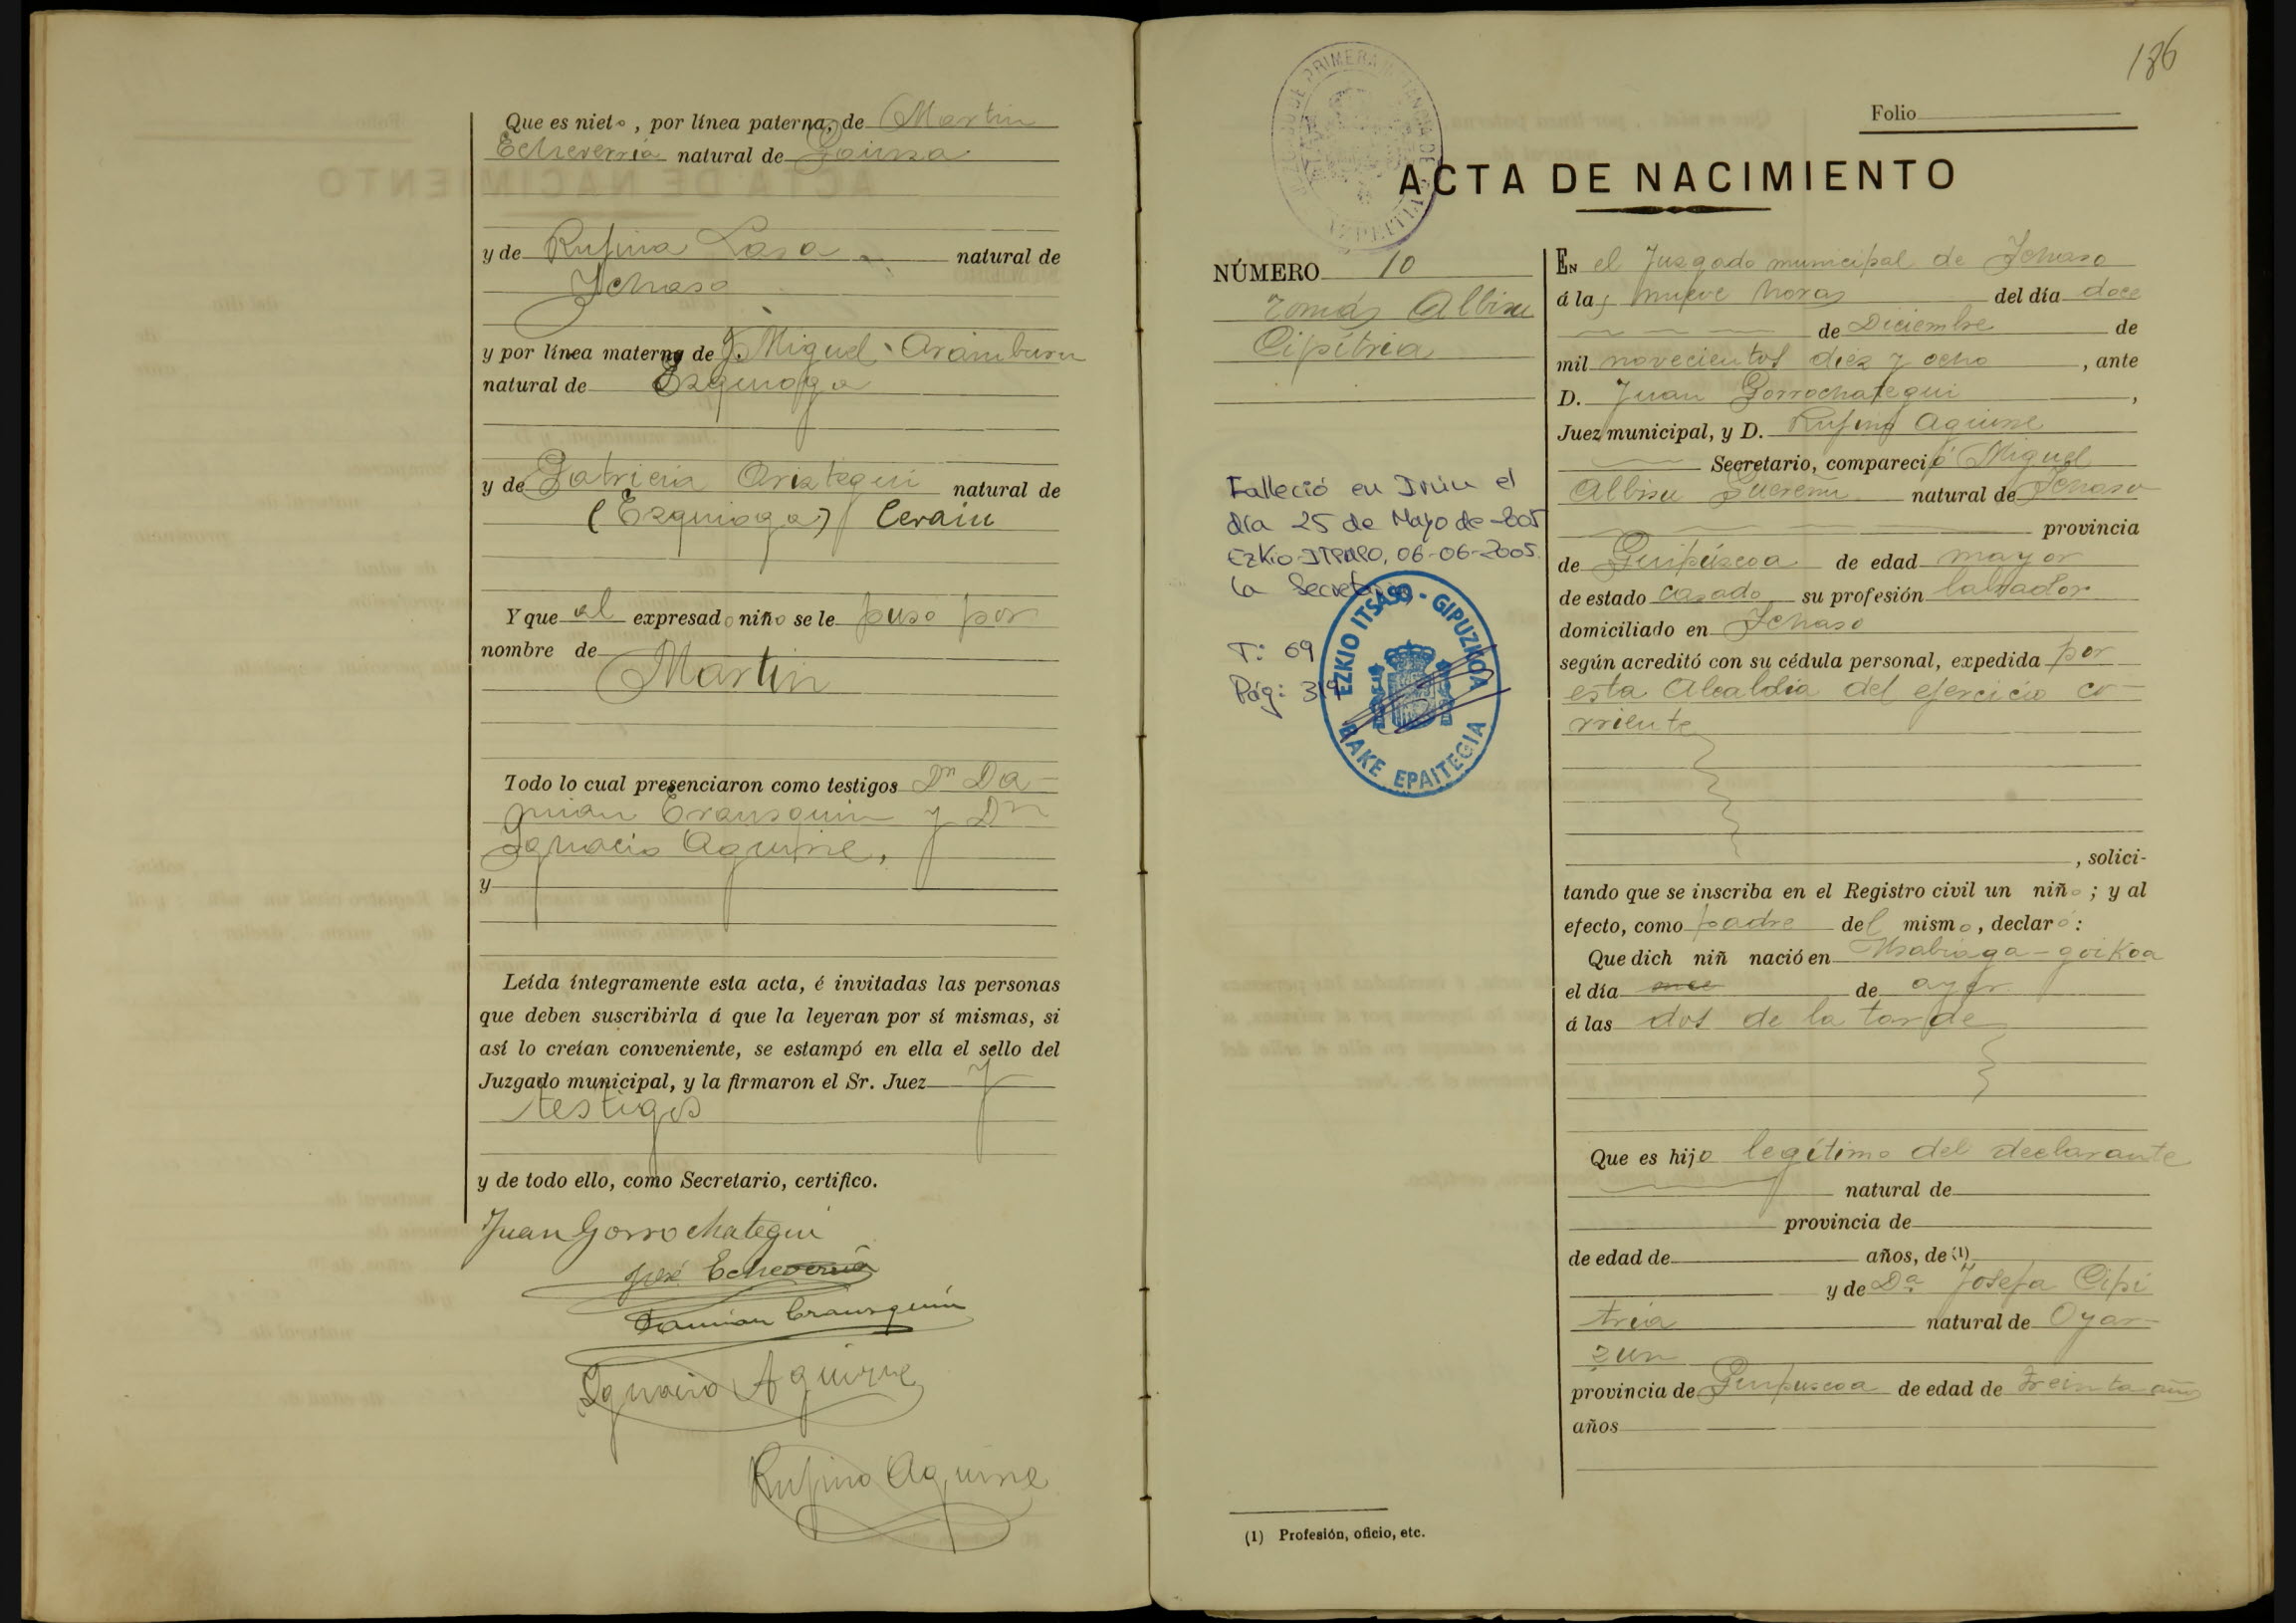 Que es nieto, por línea paterna, de Martin
Echeverria natural de Gainza
y de Rufina Lasa natural de
Ychaso
y por línea materna de J. Miguel Aramburu
natural de Ezquioga
y de Patricia Ariztegui natural de
(Ezquioga) Cerain
Y que al expresado niño se le puso por
nombre de
Martin
Todo lo cual presenciaron como testigos Dn Da-
mian Erausquin y Dn
Ignacio Aguirre,
y
Leída íntegramente esta acta, é invitadas las personas
que deben suscribirla á que la leyeran por sí mismas, si
así lo creían conveniente, se estampó en ella el sello del
Juzgado municipal, y la firmaron el Sr. Juez y
testigos
y de todo ello, como Secretario, certifico.
Juan Gorrochategui
José Echeverria
Damian Erausquin
Ignacio Aguirre
Rufino Aguirre
186
Folio
ACTA DE NACIMIENTO
NÚMERO 10
Tomás Albisu
Cipitria
Falleció en Irún el
día 25 de Mayo de 2005
Ezkio-Itsaso, 06-06-2005.
La Secretaria
T: 69
Pág:
EZKIO ITSASO - GIPUZKOA
BAKE EPAITEGIA
EN el Juzgado municipal de Ychaso
á las nueve horas del día doce
de Diciembre de
mil novecientos diez y ocho, ante
D. Juan Gorrochategui,
Juez municipal, y D. Rufino Aguirre
Secretario, compareció Miguel
Albisu natural de Ychaso
provincia
de Guipúzcoa de edad mayor
de estado casado su profesión labrador
domiciliado en Ychaso
según acreditó con su cédula personal, expedida por
esta Alcaldia del ejercicio co-
rriente
, solici-
tando que se inscriba en el Registro civil un niño; y al
efecto, como padre del mismo, declaró:
Que dich niñ nació en Usabiaga-goikoa
el día once de ayer
á las dos de la tarde
Que es hijo legítimo del declarante
natural de
provincia de
de edad de años, de (1)
y de Da Josefa Cipi
tria natural de Oyar-
zun
provincia de Guipuzcoa de edad de treinta años
años
(1) Profesión, oficio, etc.